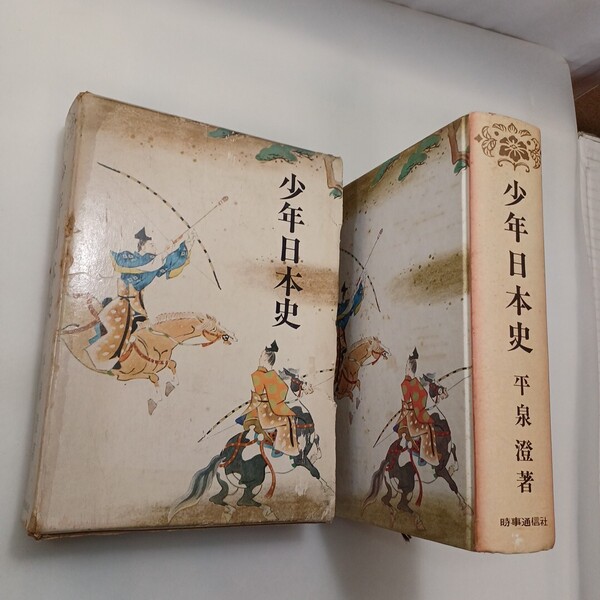 少年日本史
少年日本史
平泉 澄著
時事通信社